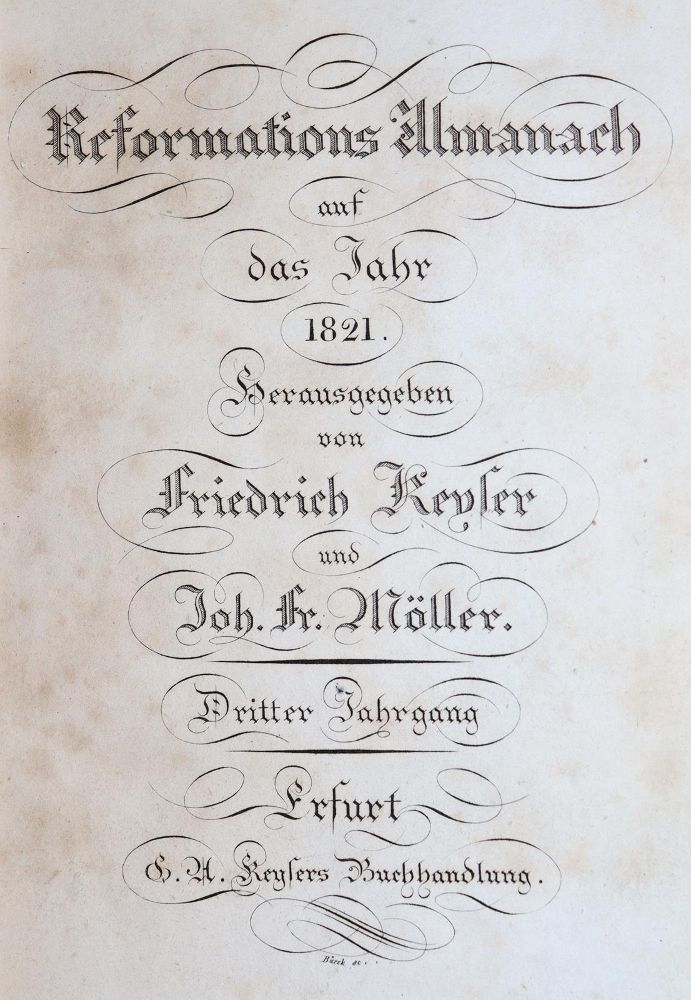 Reformations Almanach
auf
das Jahr
1821.
Herausgegeben
von
Friedrich Keyser
und
Joh. Fr. Möller.
Dritter Jahrgang
Erfurt
G. A. Keysers Buchhandlung.
sc.